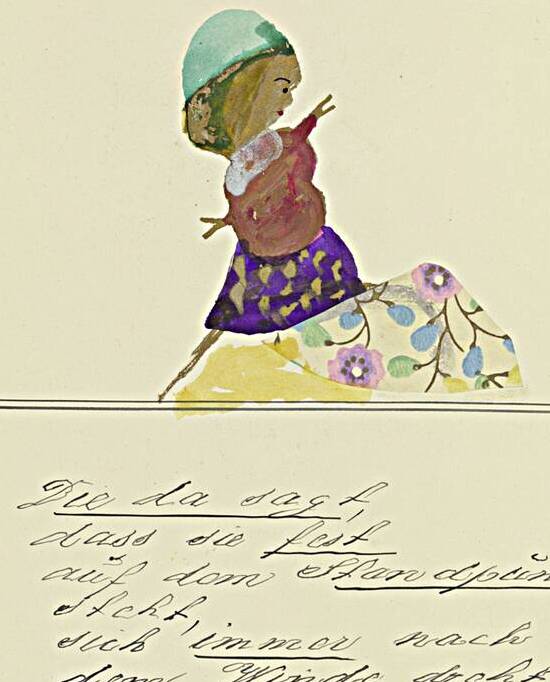 Die da sagt,
dass sie fest
auf dem Standpun
steht,
sich immer nach
dem Winde dreht